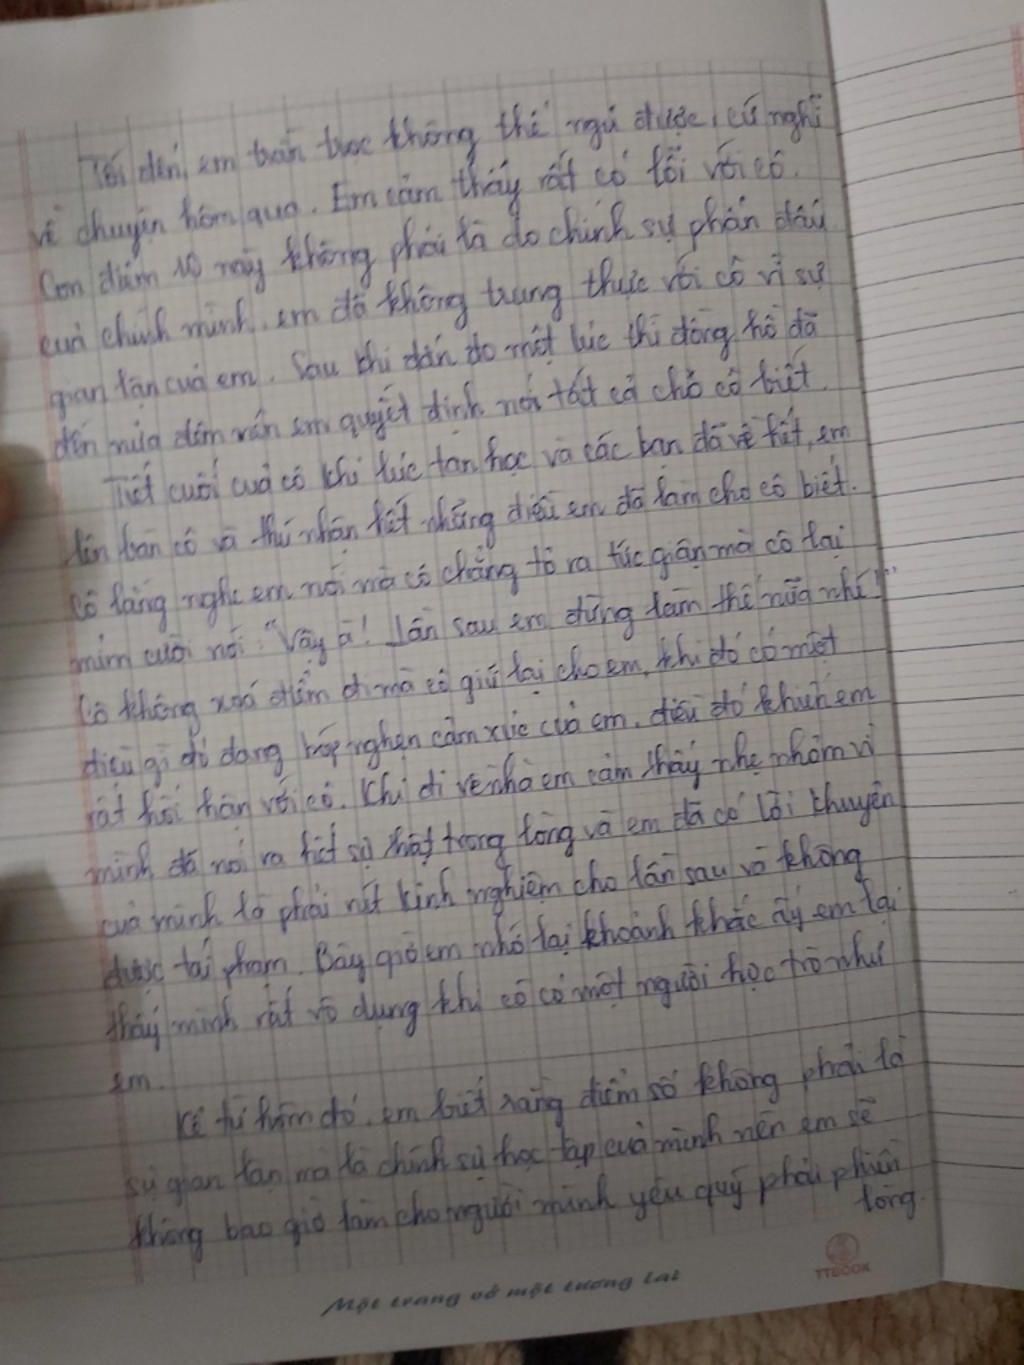 Tối đến, em trằn trọc không thể ngủ được, cứ nghĩ
về chuyện hôm qua. Em cảm thấy rất có lỗi với cô.
Con điểm 10 này không phải là do chính sự phấn đấu
của chính mình, em đã không trung thực với cô vì sự
gian lận của em. Sau khi đắn đo một lúc thì đồng hồ đã
đến nửa đêm vẫn em quyết định nói tất cả cho cô biết.
Tiết cuối của cô khi lúc tan học và các bạn đã về hết, em
lên bàn cô và thú nhận hết những điều em đã làm cho cô biết.
Cô lắng nghe em nói mà cô chẳng tỏ ra tức giận mà cô lại
mỉm cười nói: "Vậy à! Lần sau em đừng làm thế nữa nhé!"
Cô không xoá điểm đi mà cô giữ lại cho em, khi đó có một
điều gì đó đang bóp nghẹn cảm xúc của em, điều đó khiến em
rất hối hận với cô. Khi đi về nhà em cảm thấy nhẹ nhõm vì
mình đã nói ra hết sự thật trong lòng và em đã có lời khuyên
của mình là phải rút kinh nghiệm cho lần sau và không
được tái phạm. Bây giờ em nhớ lại khoảnh khắc ấy em lại
thấy mình rất vô dụng khi cô có một người học trò như
em.
Kể từ hôm đó, em biết rằng điểm số không phải là
sự gian lận mà là chính sự học tập của mình nên em sẽ
không bao giờ làm cho người mình yêu quý phải phiền
lòng.
Một trang vở một tương lai
TTBOOK